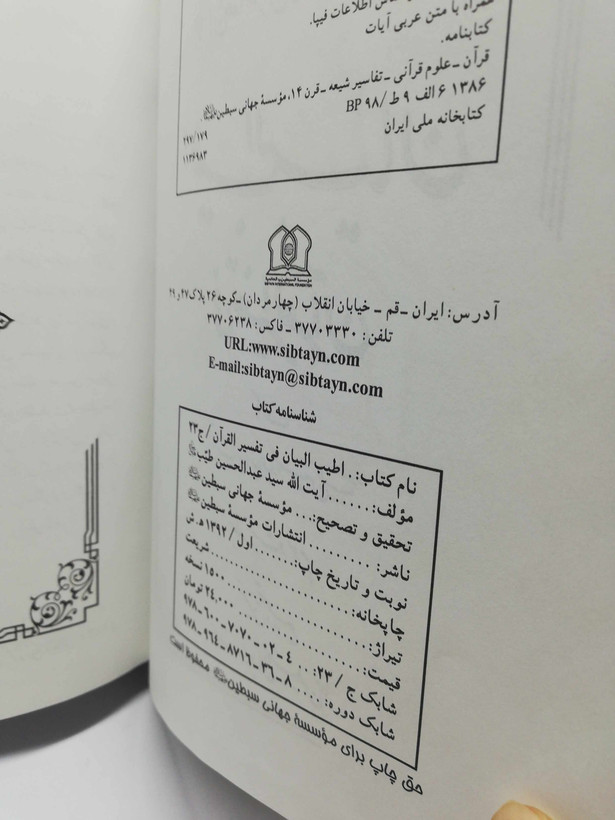 همراه با متن عربی آیات
کتابنامه.
قرآن ـ علوم قرآنی ـ تفاسیر شیعه ـ قرن ۱۴، مؤسسهٔ جهانی سبطین
۱۳۸۶ ۶ الف ۹ ط / BP ۹۸
کتابخانه ملی ایران
۲۹۷/۱۷۹
۱۱۳۶۹۸۳
آدرس: ایران ـ قم ـ خیابان انقلاب (چهارمردان) ـ کوچه ۲۶ پلاک ۴۷ و ۴۹
تلفن: ۳۷۷۰۳۳۳۰ ـ فاکس: ۳۷۷۰۶۲۳۸
URL:www.sibtayn.com
E-mail:sibtayn@sibtayn.com
شناسنامه کتاب
نام کتاب: . اطیب البیان فی تفسیر القرآن / ج۲۳
مؤلف: ...... آیت الله سید عبدالحسین طیّب
تحقیق و تصحیح: ... مؤسسهٔ جهانی سبطین
ناشر: .......... انتشارات مؤسسهٔ سبطین
نوبت و تاریخ چاپ: ...... اول / ۱۳۹۲ ه‍. ش
چاپخانه: .................... شریعت
تیراژ: .................... ۱۵۰۰ نسخه
قیمت: .................... ۲۴,۰۰۰ تومان
شابک ج / ۲۳: ... ۴ ـ ۰۲ ـ ۷۰۷۰ ـ ۶۰۰ ـ ۹۷۸
شابک دوره: .... ۸ ـ ۳۶ ـ ۸۷۱۶ ـ ۹۶۴ ـ ۹۷۸
حق چاپ برای مؤسسهٔ جهانی سبطین محفوظ است